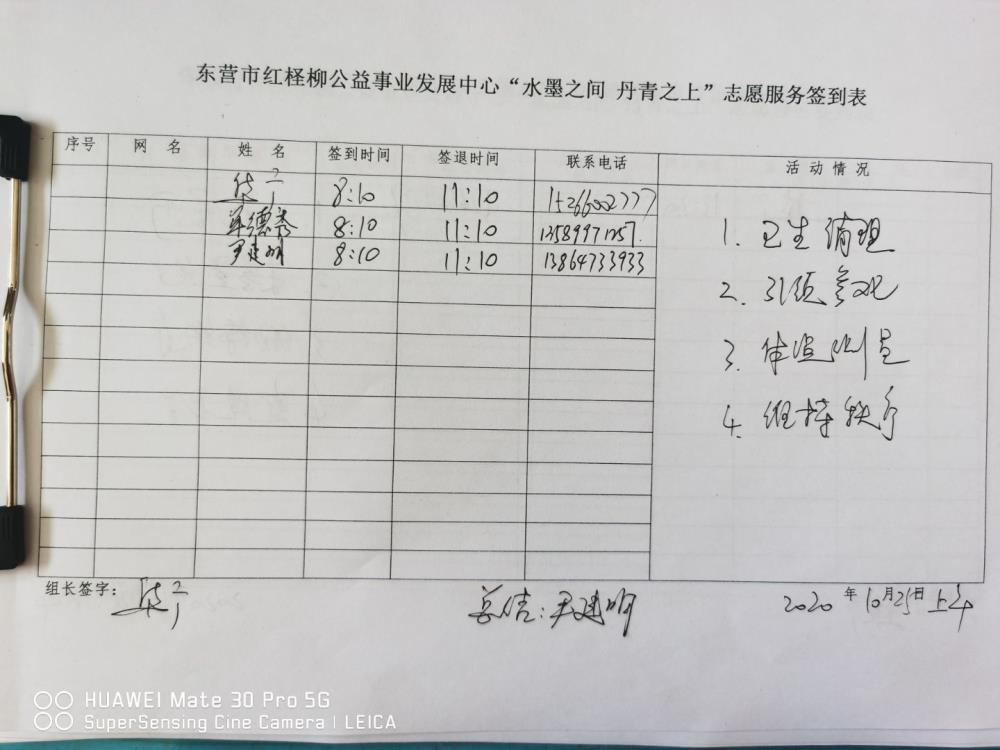 东营市红柽柳公益事业发展中心“水墨之间 丹青之上”志愿服务签到表
序号 网 名 姓 名 签到时间 签退时间 联系电话 活动情况
8:10 11:10 15266002777
单德秀 8:10 11:10 13589971357.
尹建明 8:10 11:10 13864733933
1. 卫生清理
2. 引领参观
3. 体温测量
4. 维持秩序
组长签字:
总结:尹建明
2020 年 10月25日上午
HUAWEI Mate 30 Pro 5G
SuperSensing Cine Camera | LEICA